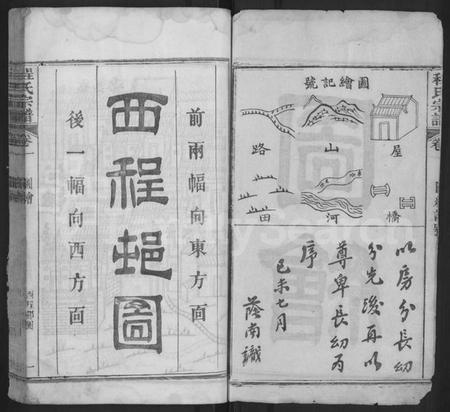 程氏宗譜
圖繪記號
屋
山
路
橋
河
田
以房分長幼
分先後再以
尊卑長幼為
序
己未七月
蔭南識
前兩幅向東方面
西程邨圖
後一幅向西方面
程氏宗譜